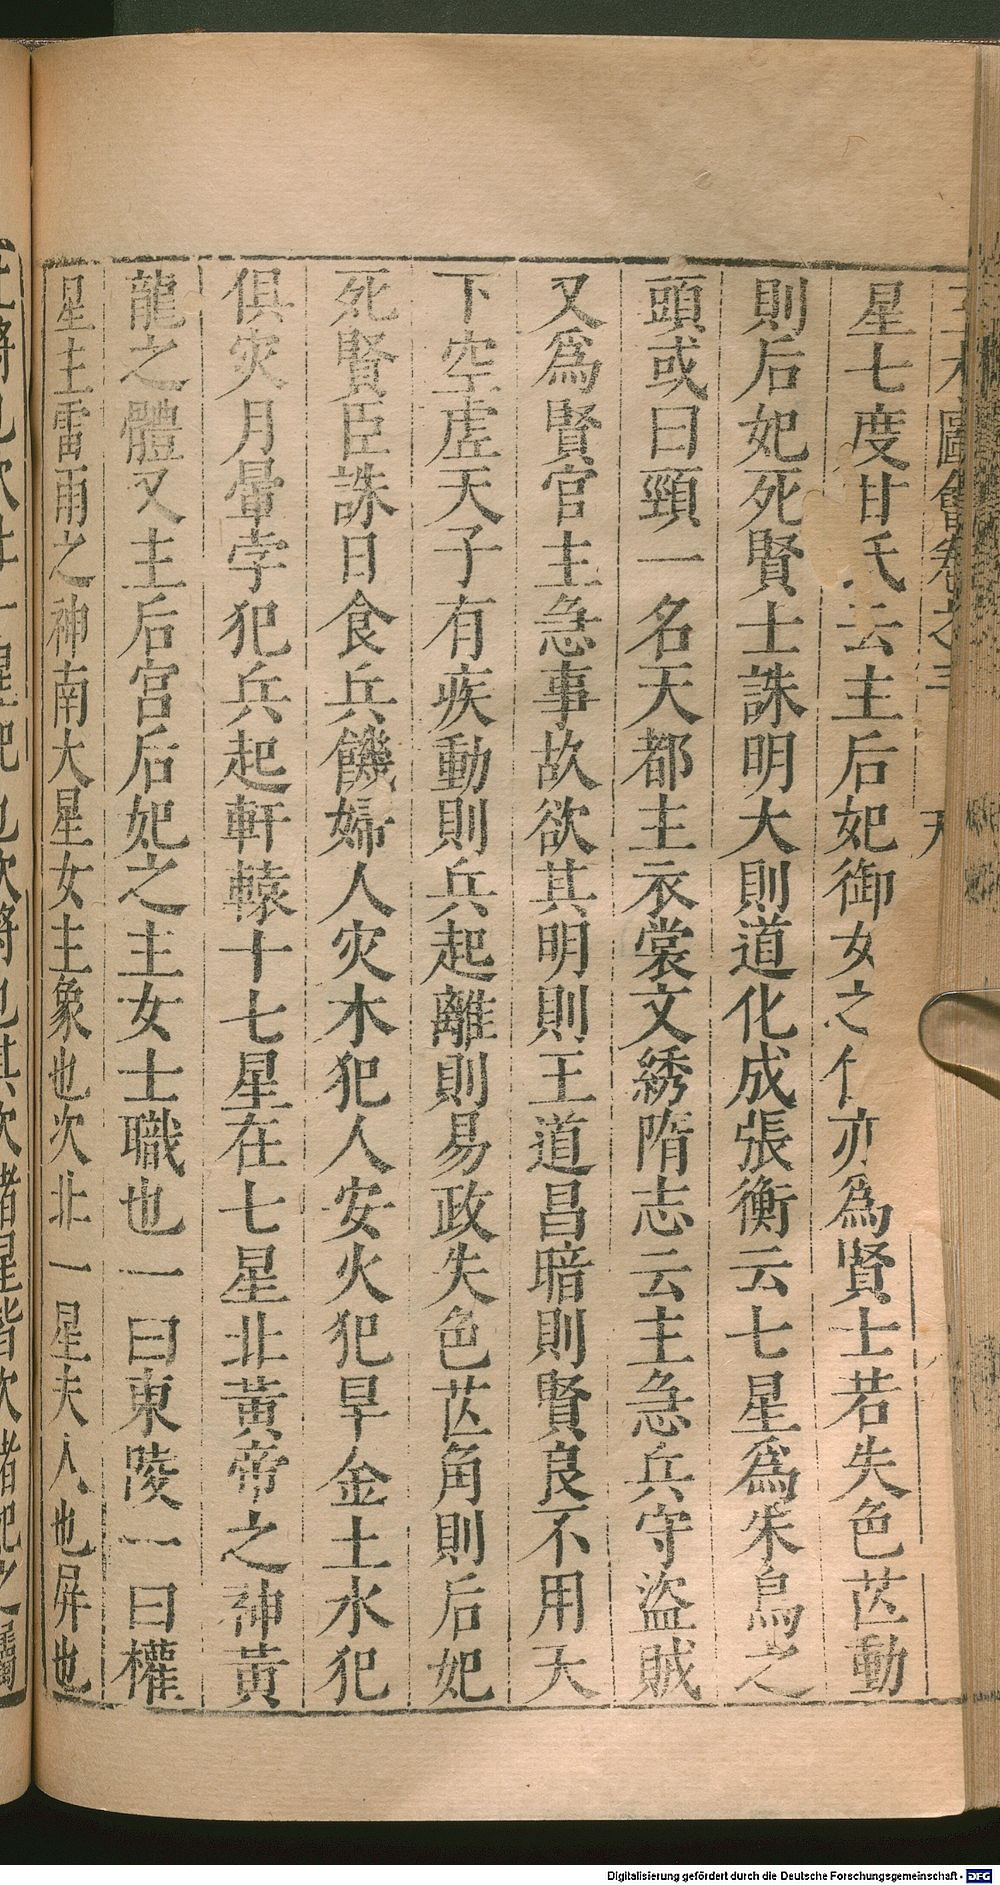 三才圖會卷之三 天
星七度甘氏云主后妃御女之位亦為賢士若失色芒動
則后妃死賢士誅明大則道化成張衡云七星為朱鳥之
頭或曰頸一名天都主衣裳文綉隋志云主急兵守盜賊
又為賢官主急事故欲其明則王道昌暗則賢良不用天
下空虛天子有疾動則兵起離則易政失色芒角則后妃
死賢臣誅日食兵饑婦人灾木犯人安火犯旱金土水犯
俱灾月暈孛犯兵起軒轅十七星在七星北黃帝之神黃
龍之體又主后宮后妃之主女士職也一曰東陵一曰權
星主雷雨之神南大星女主象也次北一星夫人也屏也
上將也次北一星妃也次將也其次諸星皆次諸妃之屬
Digitalisierung gefördert durch die Deutsche Forschungsgemeinschaft - DFG